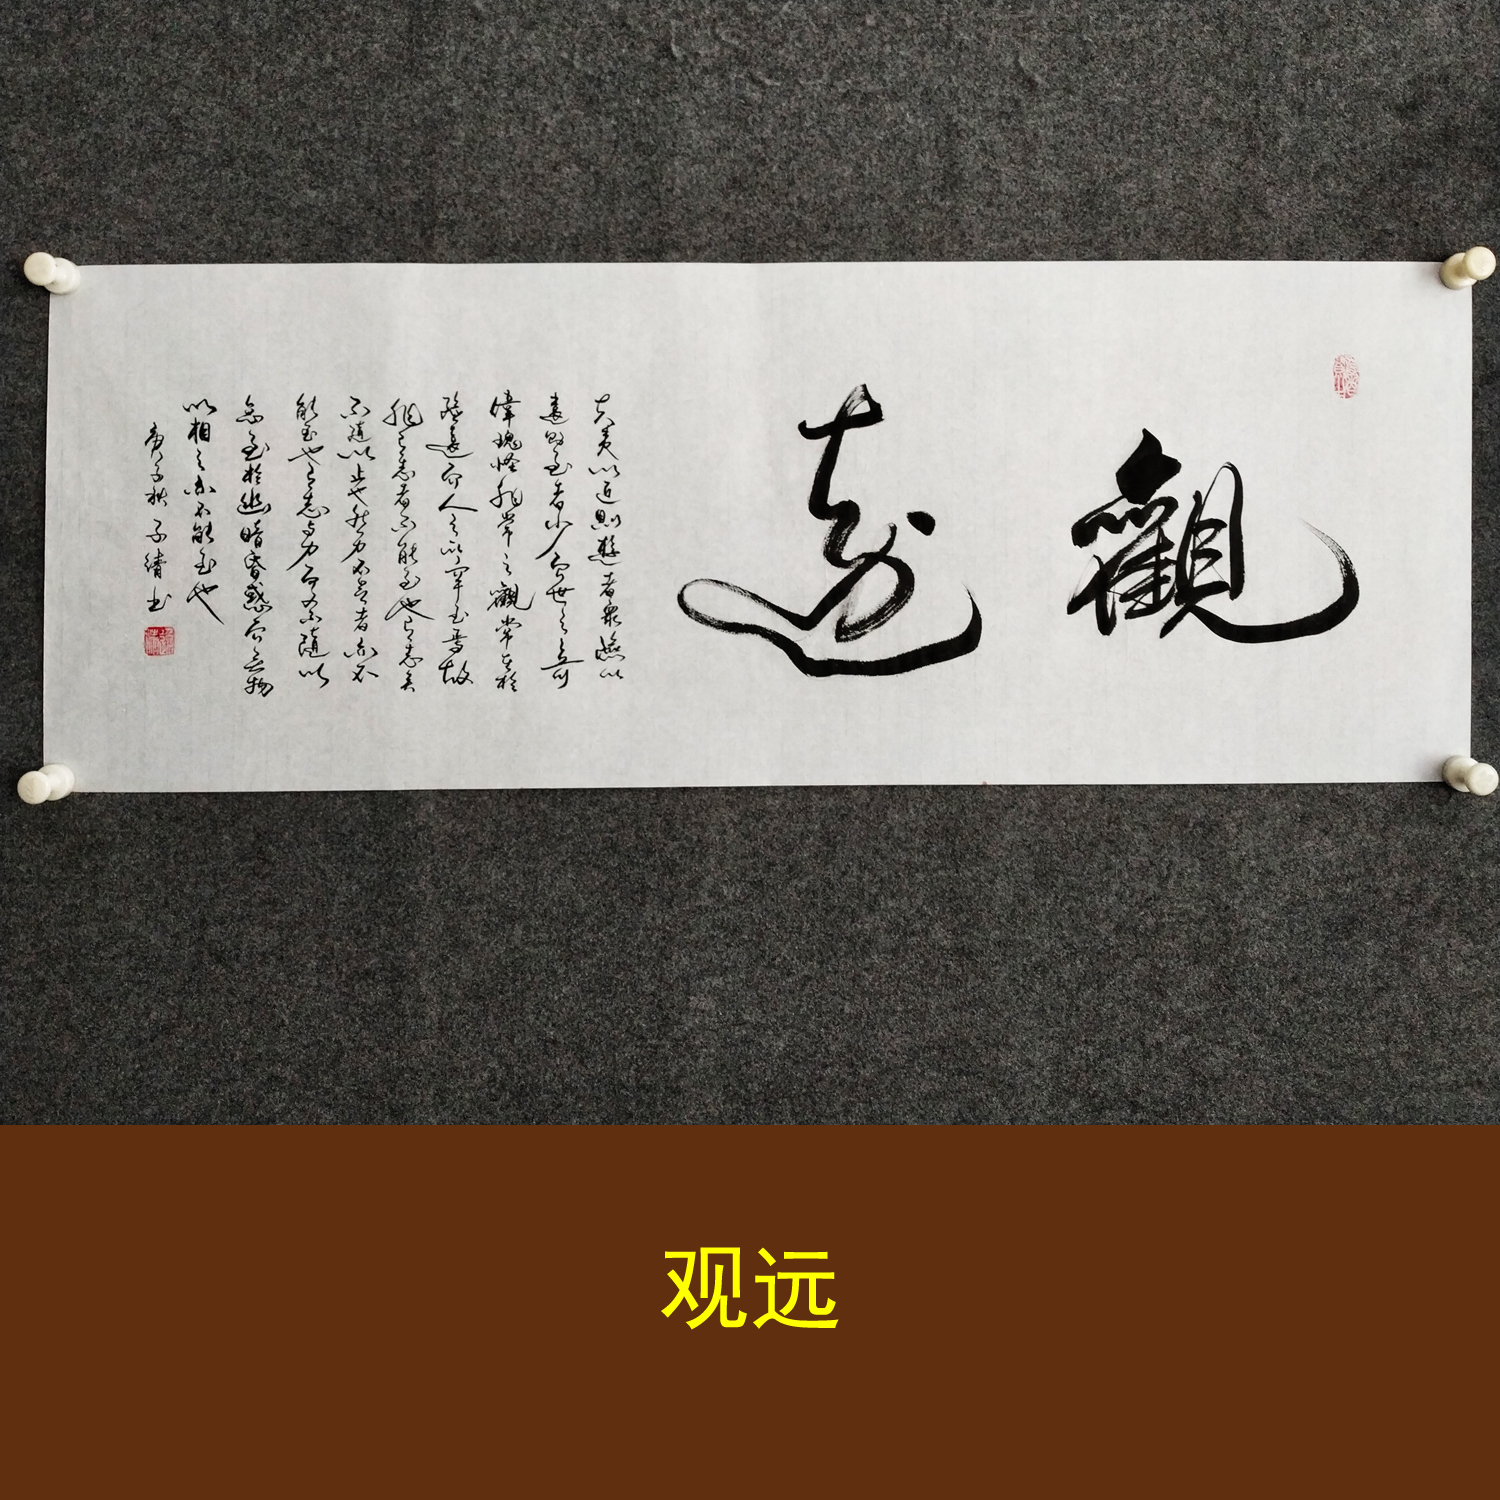 觀遠
夫夷以近則遊者衆險以
遠則至者少而世之奇
偉瑰怪非常之觀常在於
險遠而人之所罕至焉故
非有志者不能至也有志矣
不隨以止也然力不足者亦不
能至也有志與力而又不隨以
怠至於幽暗昏惑而無物
以相之亦不能至也
庚子秋子书
观远